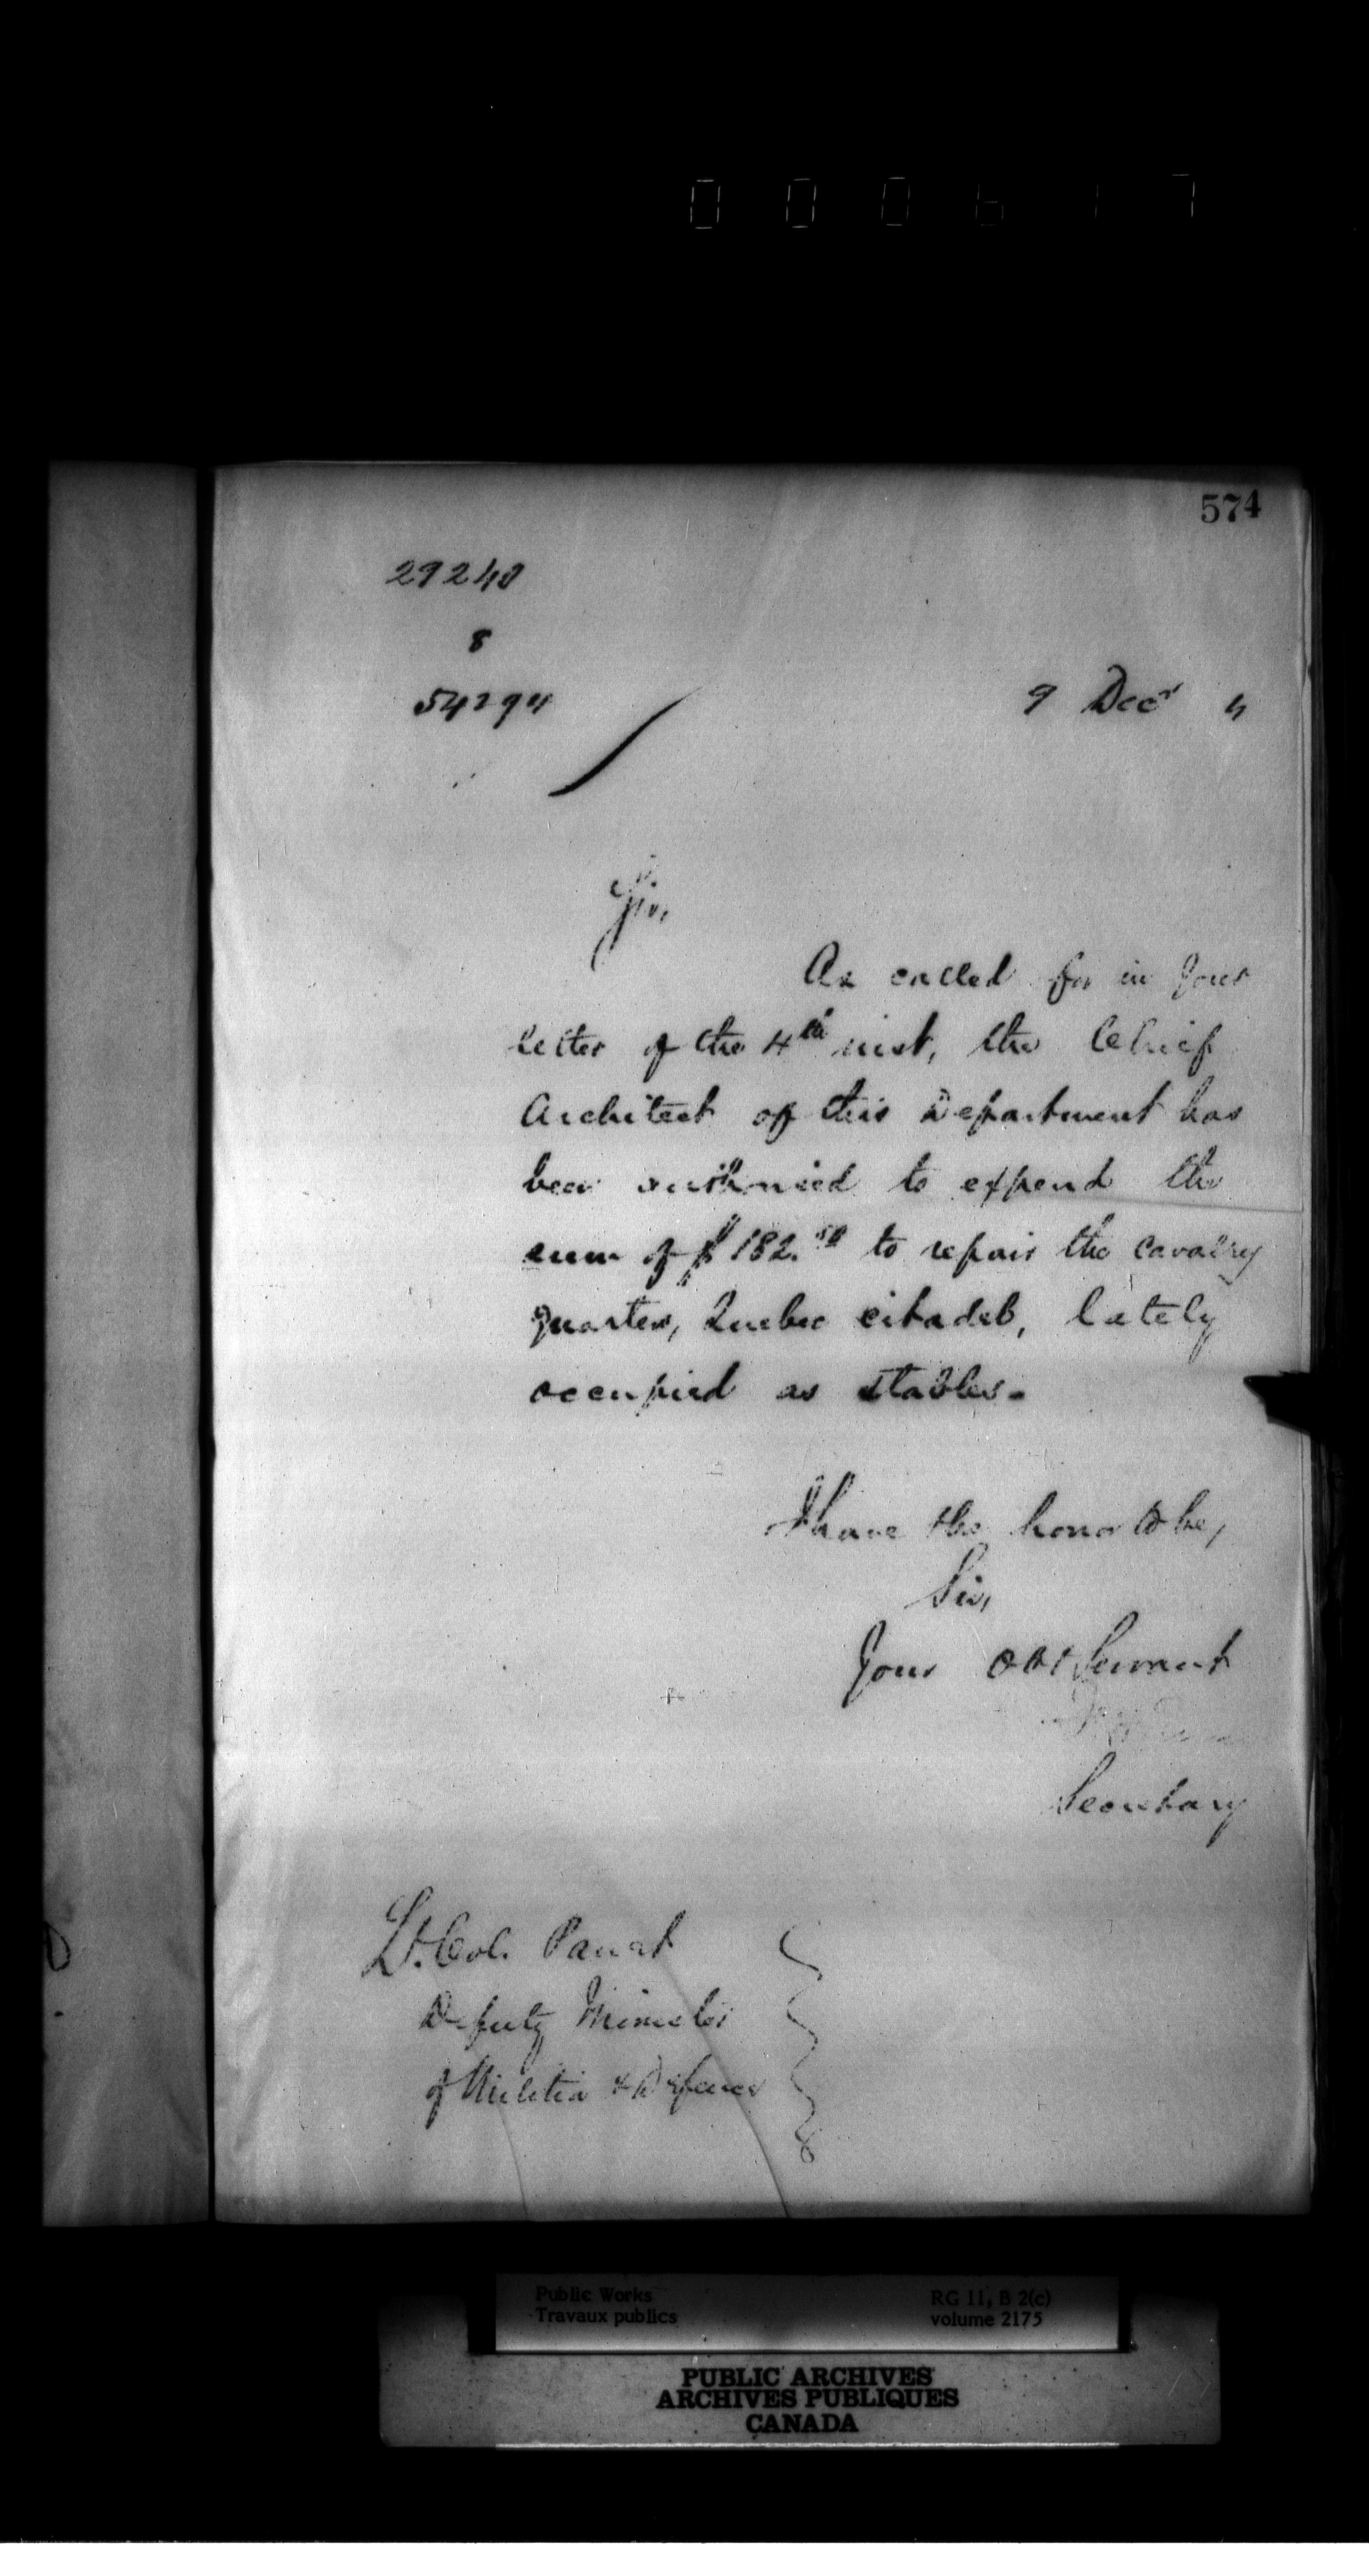 000617
574
29240
8
54294
9 Decr 4
Sir,
As called for in your
letter of the 4th inst, the Chief
Architect of this Department has
been authorized to expend the
sum of $182.50 to repair the cavalry
quarters, Quebec citadel, lately
occupied as stables.
I have the honor to be,
Sir,
Your Obt Servant
Secretary
Lt. Col. Panet
Deputy Minister
of Militia & Defence
Public Works
Travaux publics
RG 11, B 2(c)
volume 2175
PUBLIC ARCHIVES
ARCHIVES PUBLIQUES
CANADA